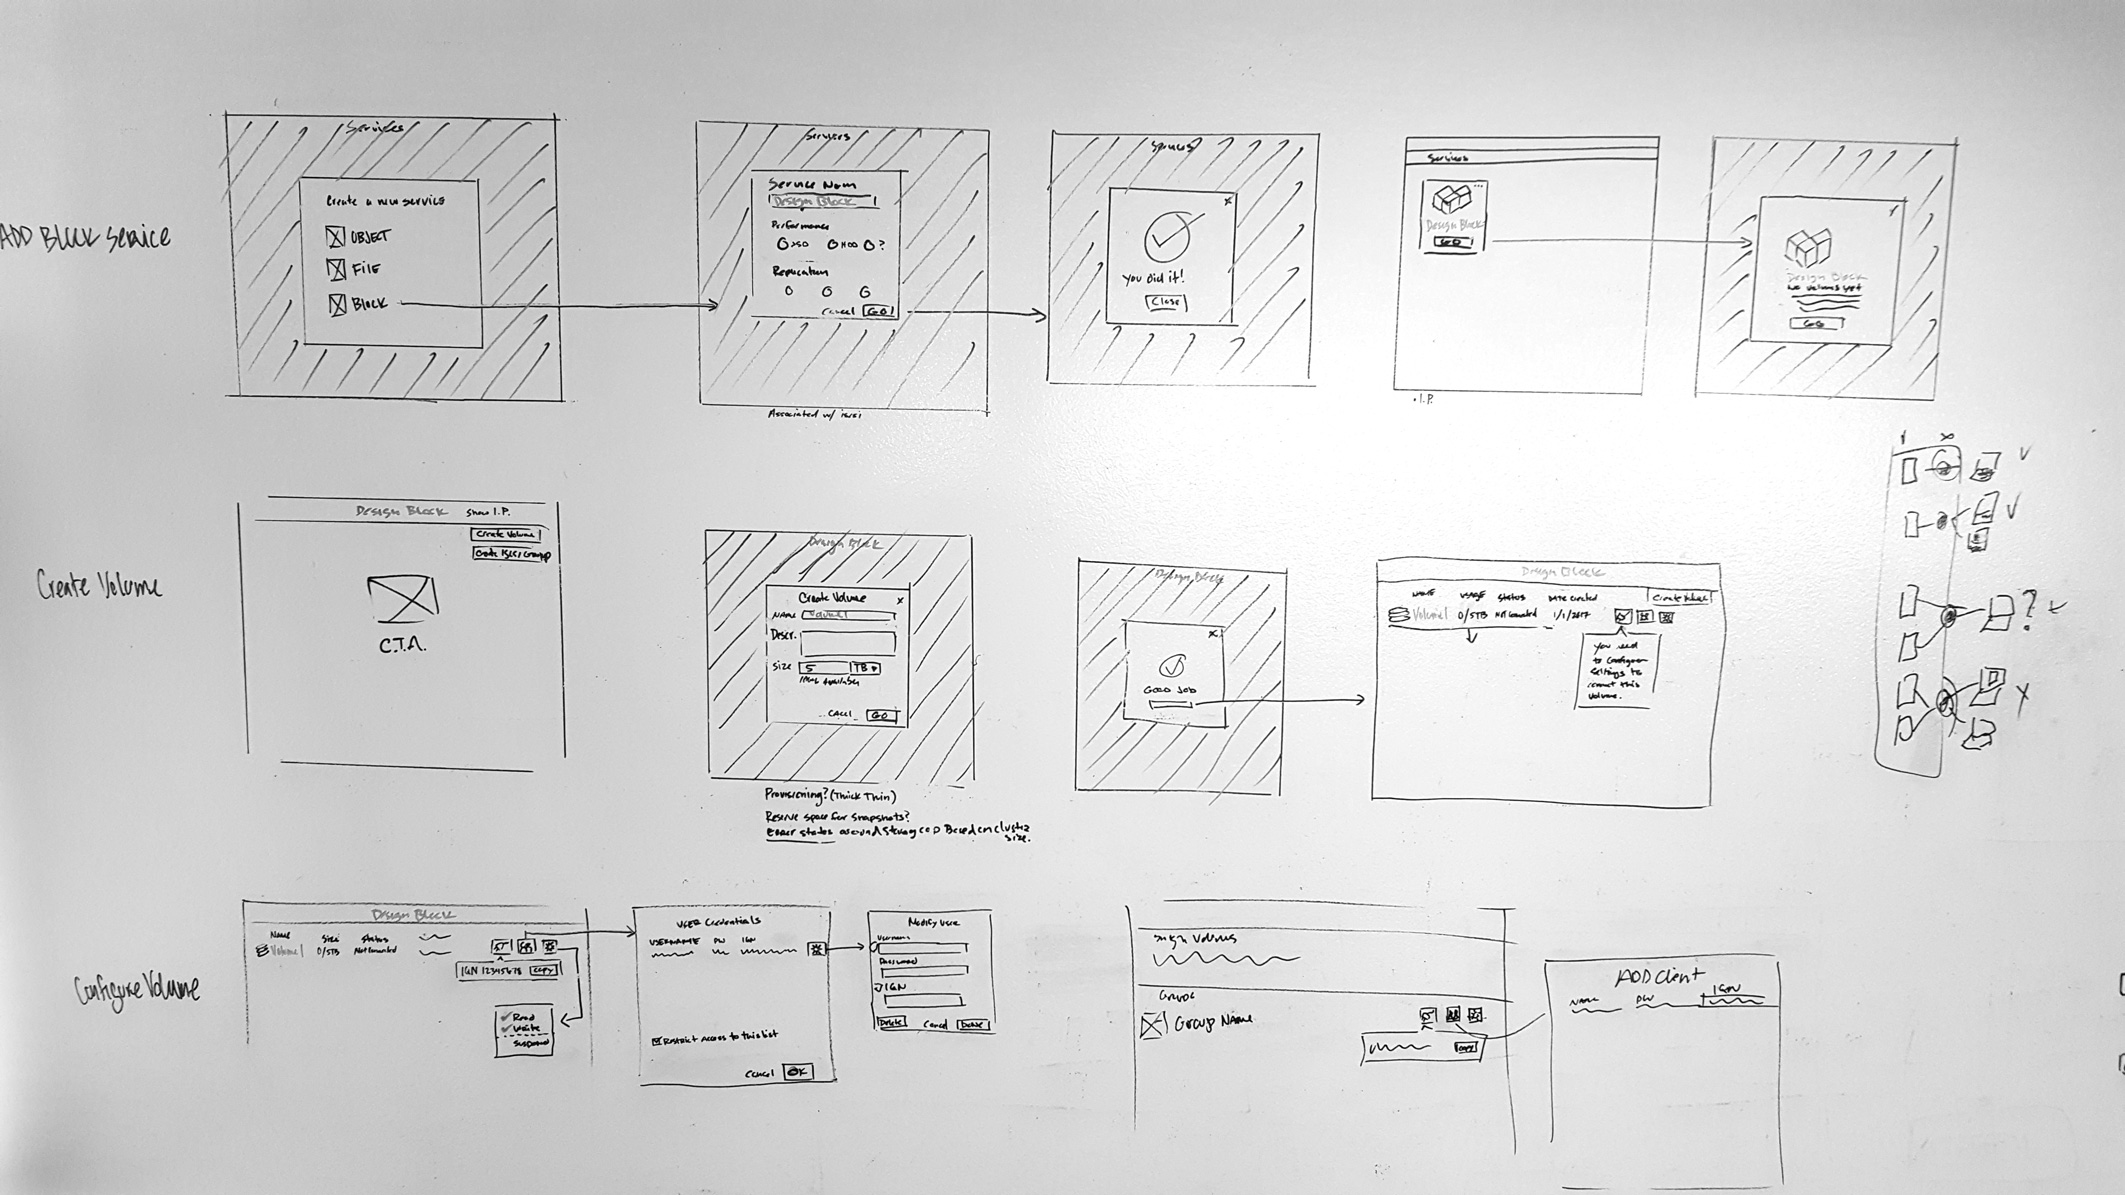 ADD Block Service
Services
Create a new service
OBJECT
FILE
BLOCK
Services
Service Name
Design Block
Performance
x50
x100
?
Replication
Cancel
GO!
Associated w/ iscsi
Services
x
You did it!
Close
Services
Design Block
GO
. I.P.
Design Block
No volumes yet
GO
Create Volume
Design Block
Show I.P.
Create Volume
C.T.A.
Design Block
Create Volume
x
NAME
Volume 1
Descr.
Size
5
TB
Cancl
GO
Provisioning? (Thick Thin)
Reserve space for snapshots?
Error states around
Based on cluster
size.
Design Block
x
Good Job
Design Block
NAME
USAGE
Status
Date Created
Create Volume
Volume 1
0/5TB
Not Connected
1/1/2017
You need
to configure
settings to
connect this
volume.
?
x
Configure Volume
Design Block
Name
Size
Status
Volume 1
0/5TB
Not Connected
IQN 12345678
COPY
Read
Write
Suspend
User Credentials
USERNAME
PW
IQN
Restrict Access to this list
Cancel
OK
Modify User
Username
Password
IQN
Delete
Cancel
Volumes
Group Name
COPY
ADD Client
NAME
PW
IQN